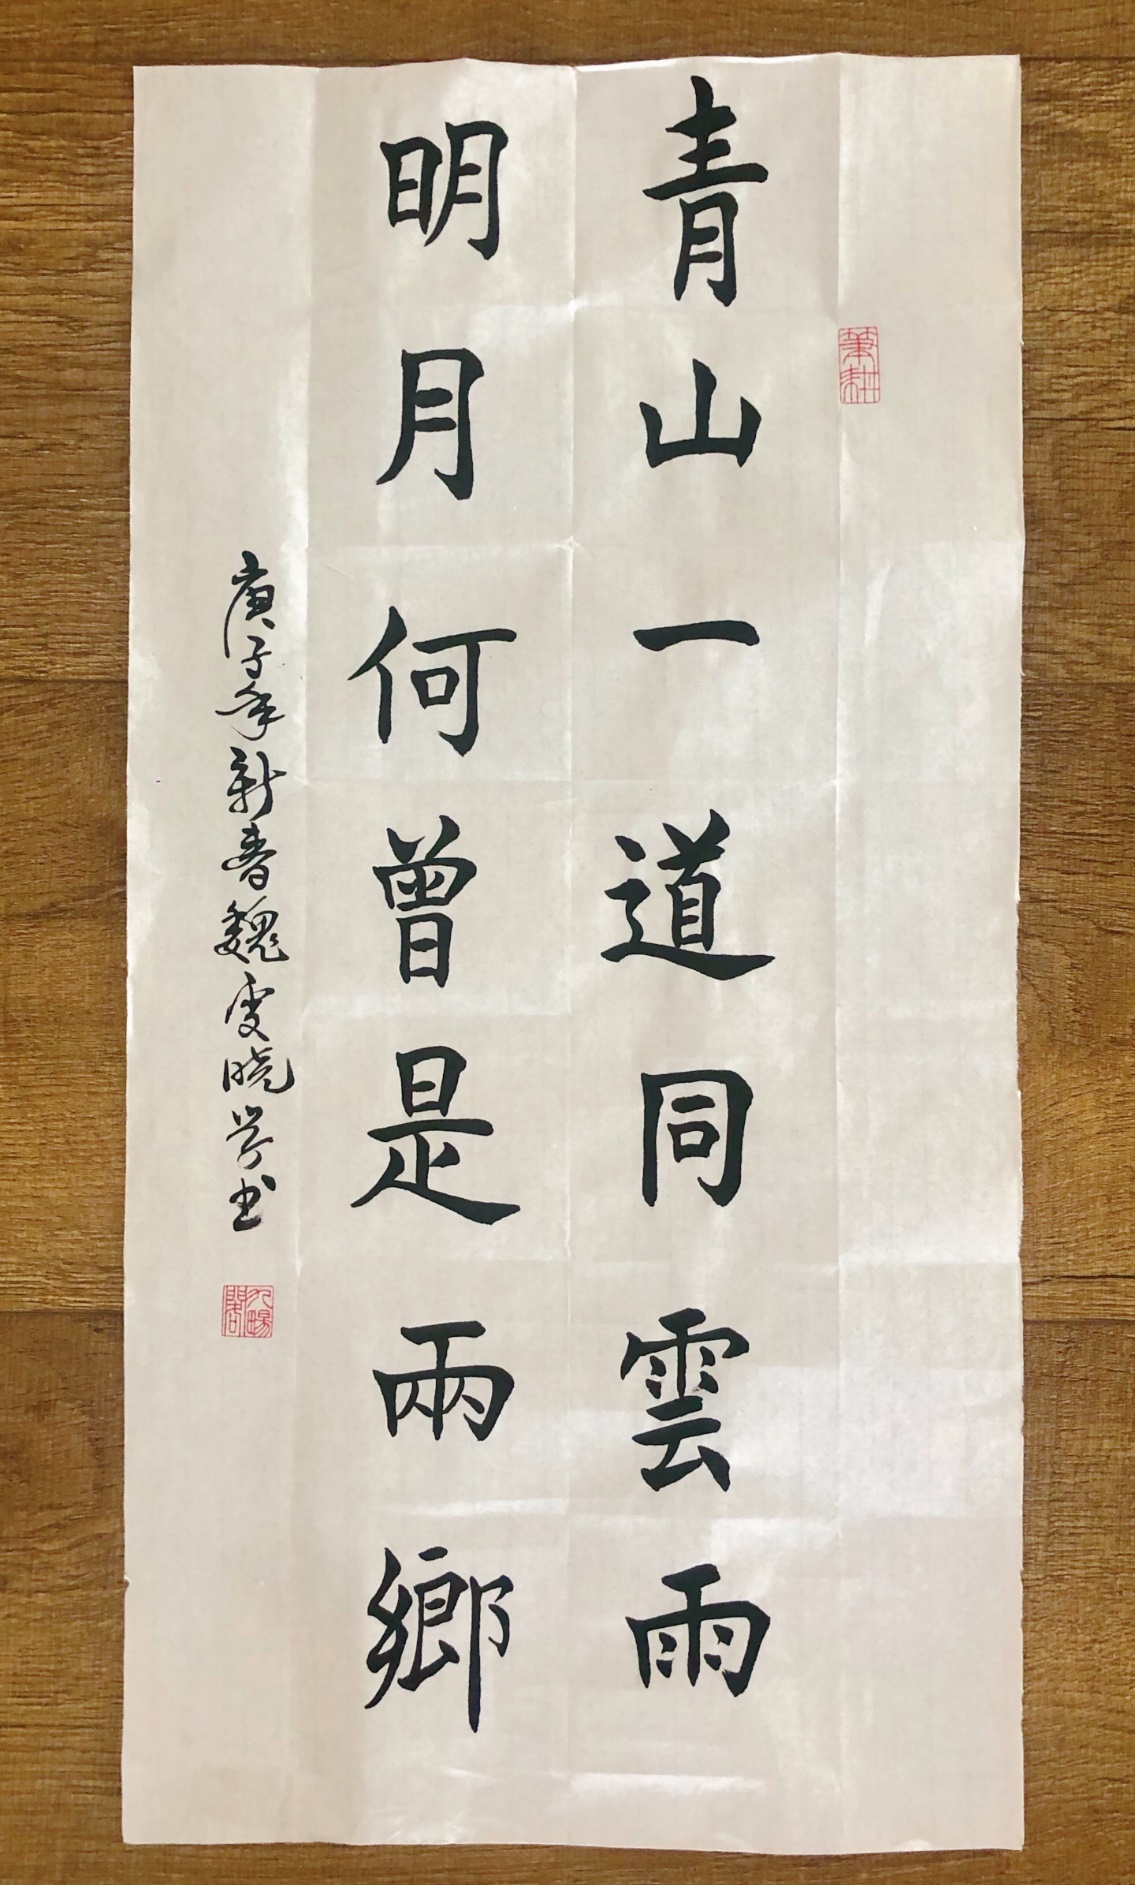 青山一道同雲雨
明月何曾是兩鄉
庚子年新春魏雯晓岑书
筆耕